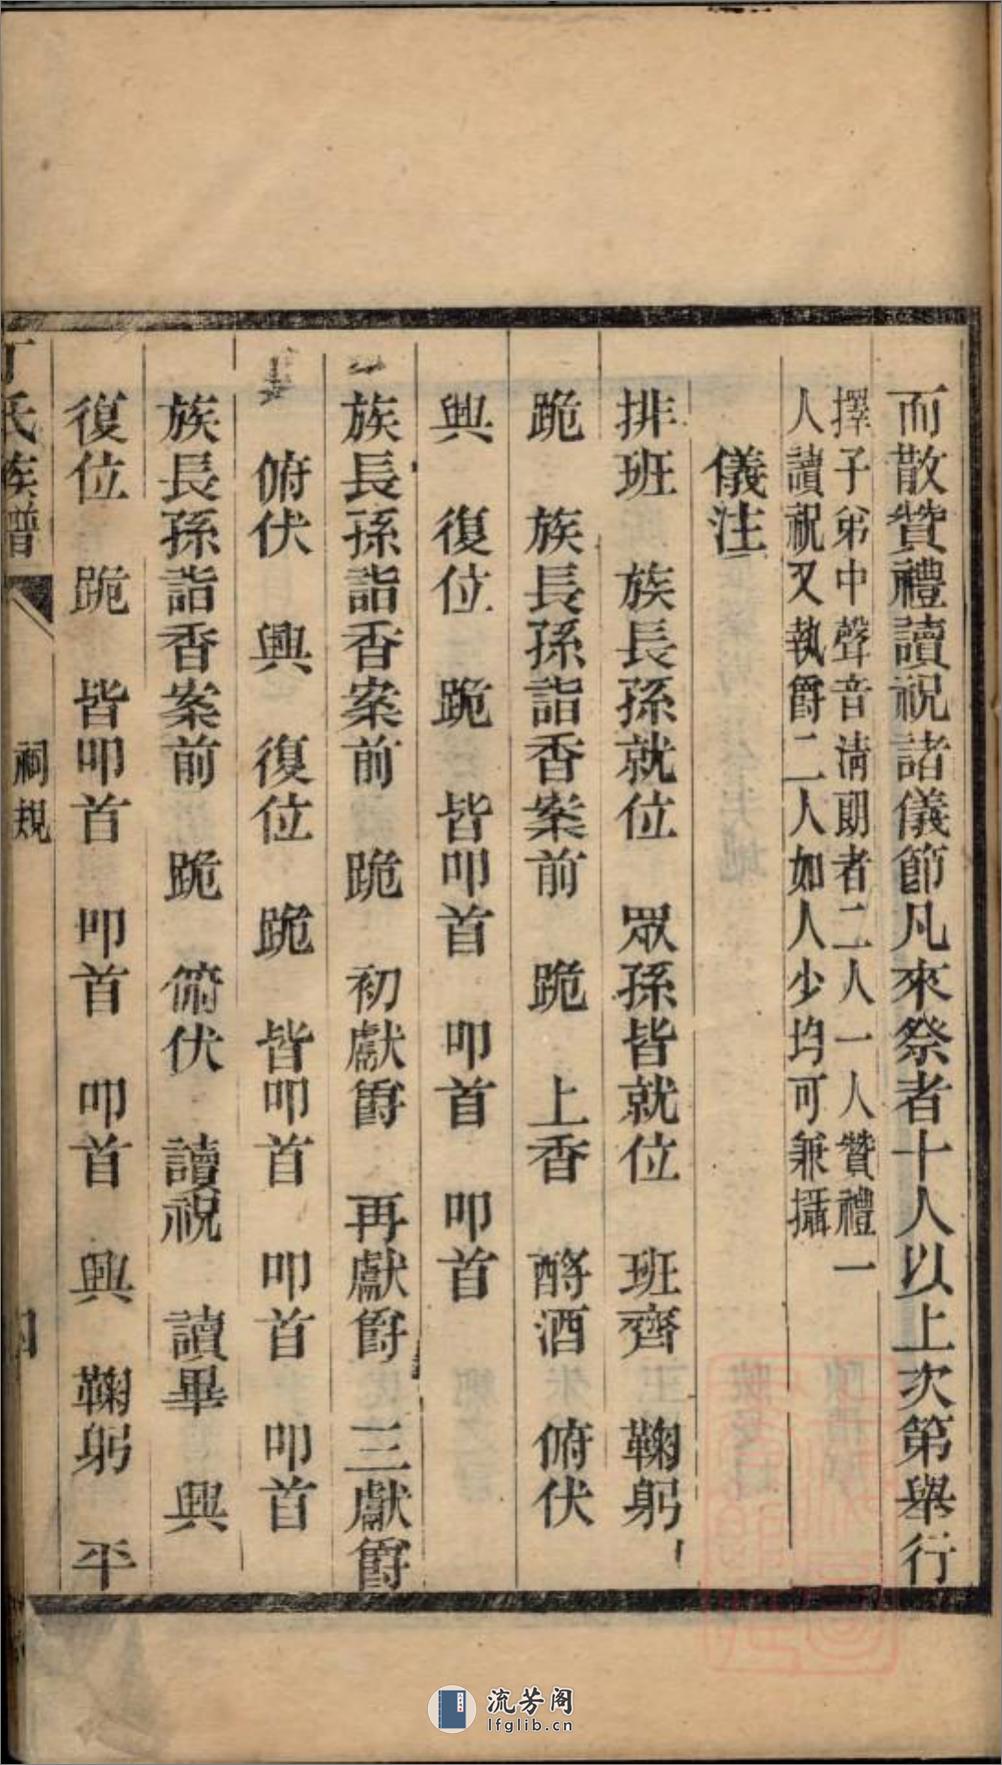 而散贊禮讀祝諸儀節凡來祭者十人以上次第舉行
擇子弟中聲音清朗者二人一人贊禮一
人讀祝又執爵二人如人少均可兼攝
儀注
排班 族長孫就位 眾孫皆就位 班齊 鞠躬
跪 族長孫詣香案前 跪 上香 酹酒 俯伏
興 復位 跪 皆叩首 叩首 叩首
族長孫詣香案前 跪 初獻爵 再獻爵 三獻爵
俯伏 興 復位 跪 皆叩首 叩首 叩首
族長孫詣香案前 跪 俯伏 讀祝 讀畢 興
復位 跪 皆叩首 叩首 叩首 興 鞠躬 平
丁氏族譜 祠規 四
流芳阁
lfglib.cn